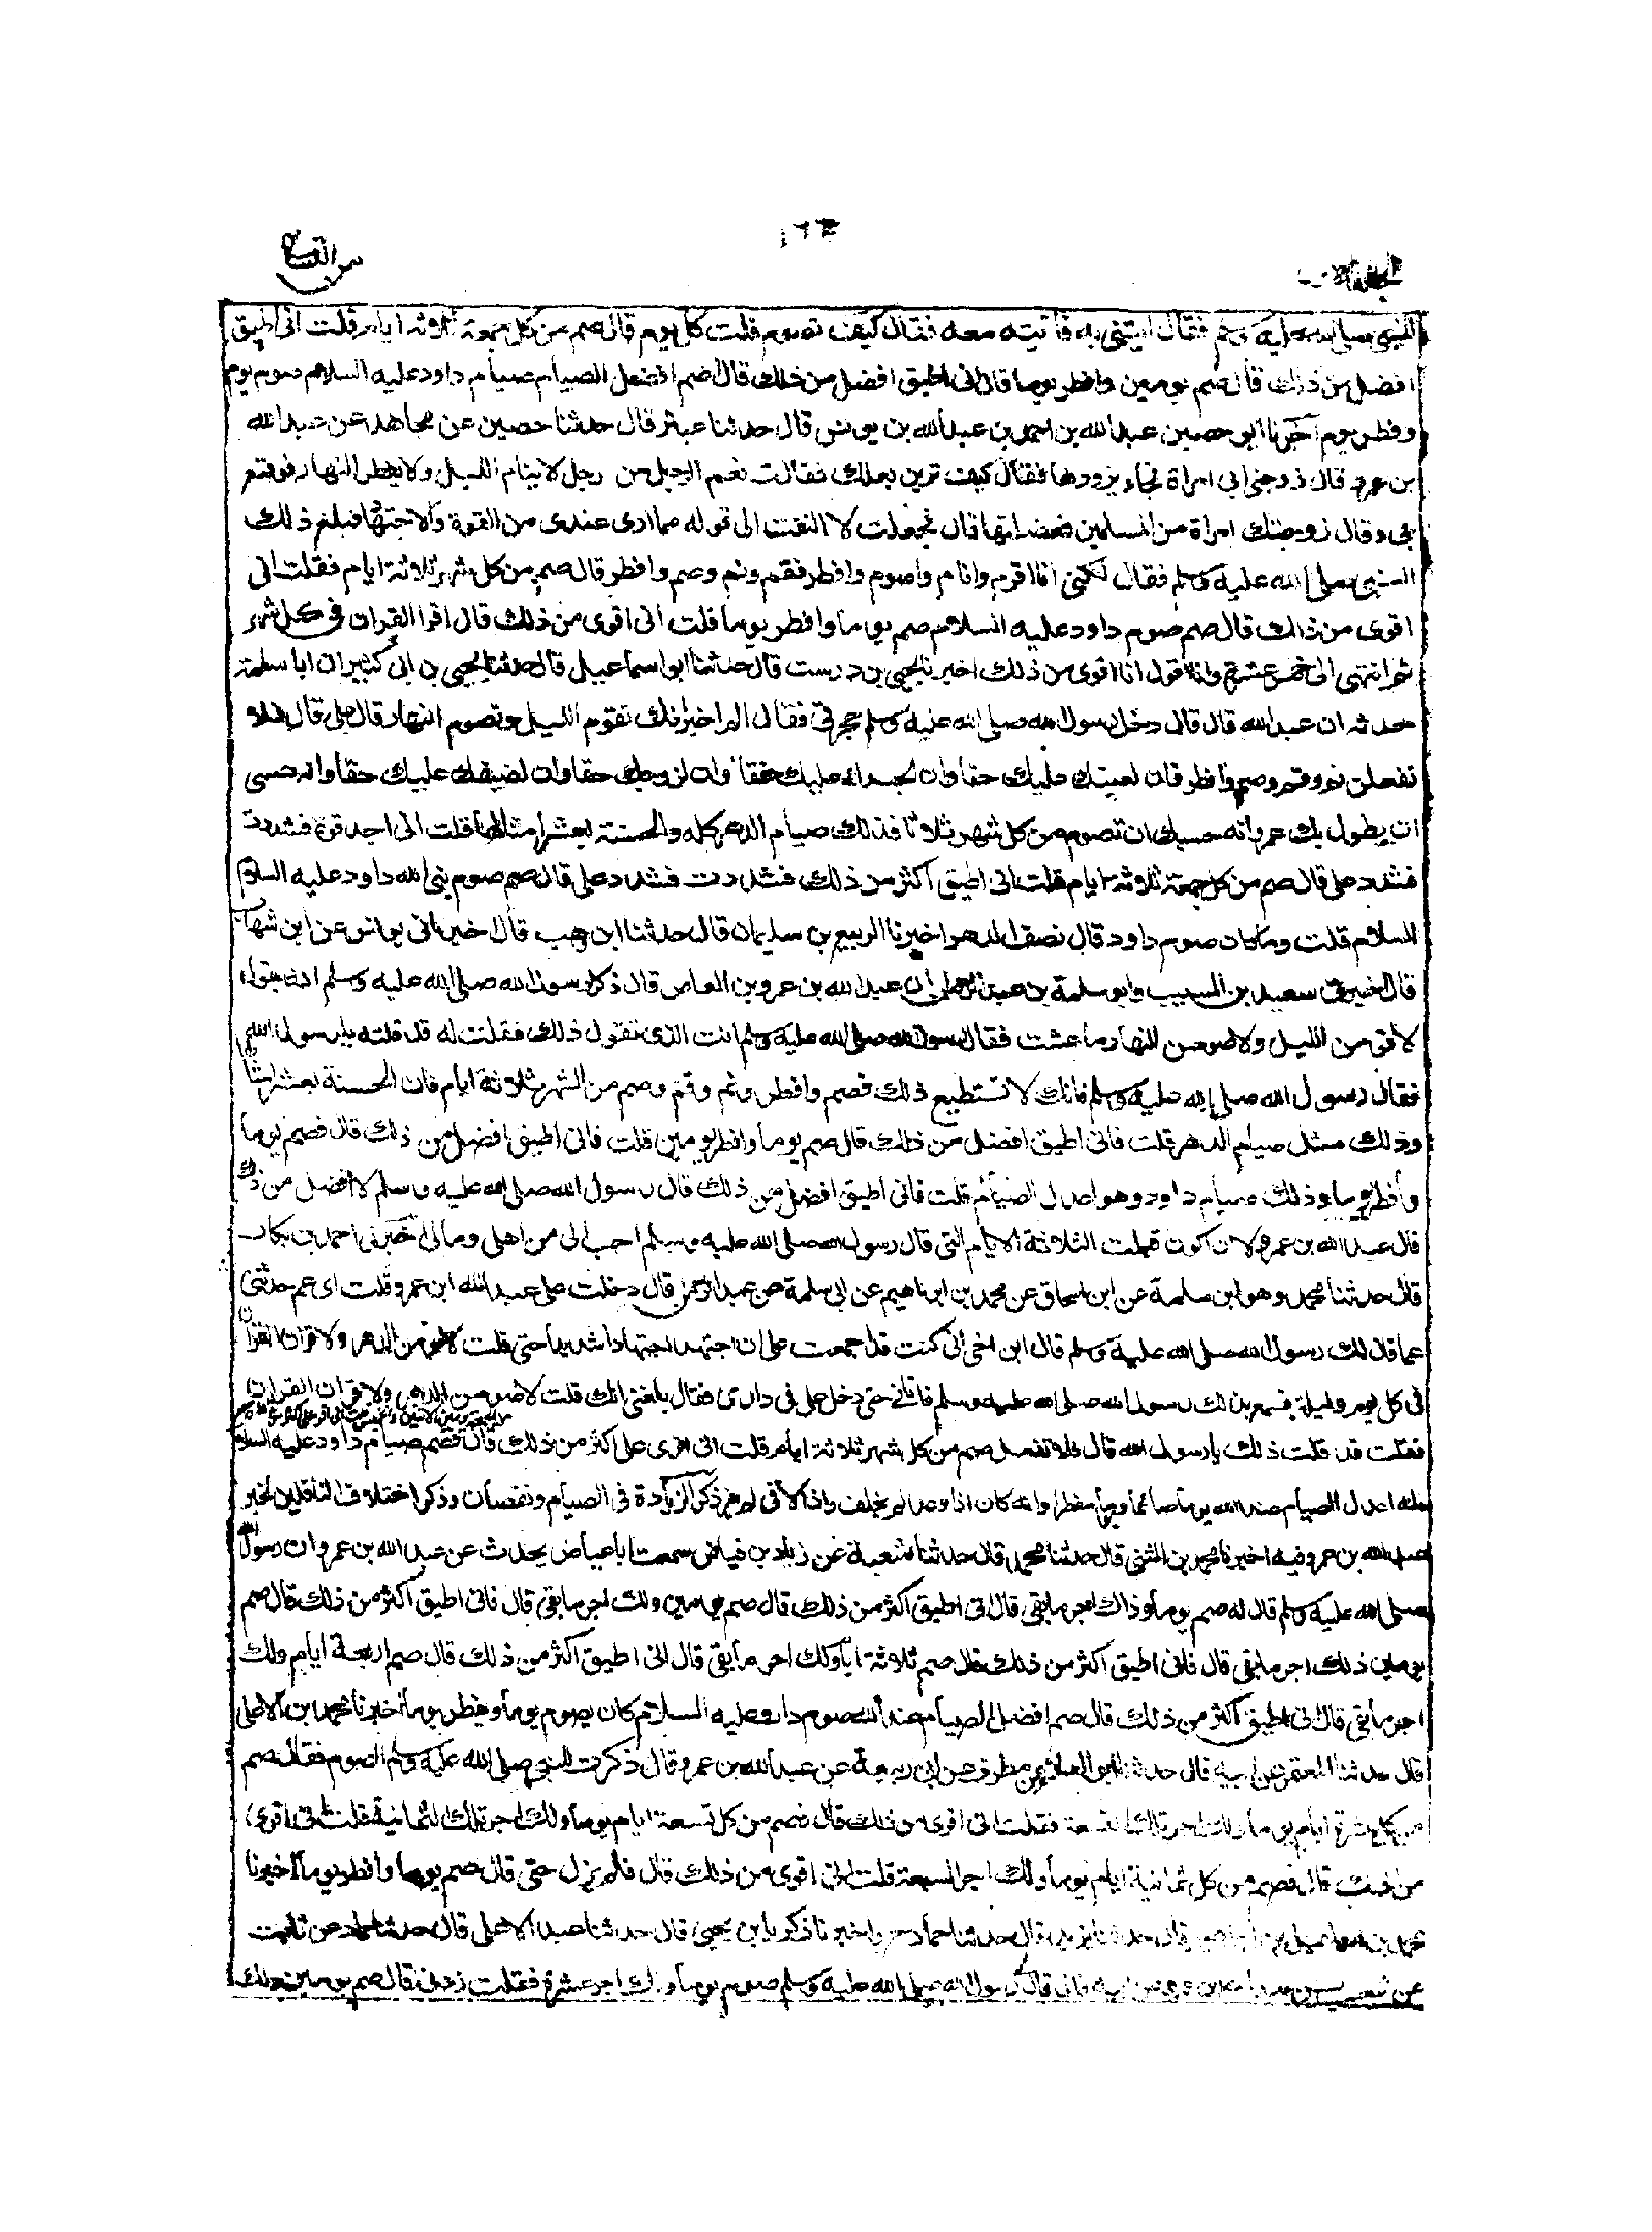 النبى صلى الله عليه وسلم فقال ايتنى به فاتيته معه فقال كيف تصوم قلت كل يوم قال صم من كل جمعة ثلاثة ايام قلت انى اطيق
افضل من ذلك قال صم يومين وافطر يوما قال انى اطيق افضل من ذلك قال صم افضل الصيام صيام داود عليه السلام صوم يوم
وفطر يوم اخبرنا ابو حصين عبد الله بن احمد بن عبد الله بن يونس قال حدثنا عبثر قال حدثنا حصين عن مجاهد عن عبد الله
بن عمرو قال زوجنى ابى امراة فجاء يزورها فقال كيف ترين بعلك فقالت نعم الرجل من رجل لا ينام الليل ولا يفطر النهار فوقع
بى وقال زوجتك امراة من المسلمين فعضلتها قال فجعلت لا التفت الى قوله مما ارى عندى من القوة والاجتهاد فبلغ ذلك
النبى صلى الله عليه وسلم فقال لكنى انا اقوم وانام واصوم وافطر فقم ونم وصم وافطر قال صم من كل شهر ثلاثة ايام فقلت انى
اقوى من ذلك قال صم صوم داود عليه السلام صم يوما وافطر يوما قلت انى اقوى من ذلك قال اقرا القران فى كل شهر
ثم انتهى الى خمس عشرة وانا اقول انا اقوى من ذلك اخبرنا يحيى بن درست قال حدثنا ابو اسماعيل قال حدثنا يحيى بن ابى كثير ان ابا سلمة
حدثه ان عبد الله قال قال دخل رسول الله صلى الله عليه وسلم حجرتى فقال الم اخبر انك تقوم الليل وتصوم النهار قال بلى قال فلا
تفعلن نم وقم وصم وافطر فان لعينك عليك حقا وان لجسدك عليك حقا وان لزوجك حقا وان لضيفك عليك حقا وانه عسى
ان يطول بك عمر وانه حسبك ان تصوم من كل شهر ثلاثا فذلك صيام الدهر كله والحسنة بعشر امثالها قلت انى اجد قوة فشددت
فشدد على قال صم من كل جمعة ثلاثة ايام قلت انى اطيق اكثر من ذلك فشددت فشدد على قال صم صوم نبى الله داود عليه السلام
السلام قلت وما كان صوم داود قال نصف الدهر اخبرنا الربيع بن سليمان قال حدثنا ابن وهب قال اخبرنى يونس عن ابن شهاب
قال اخبرنى سعيد بن المسيب وابو سلمة بن عبد الرحمن ان عبد الله بن عمرو بن العاص قال ذكر لرسول الله صلى الله عليه وسلم انه يقول
لاقومن الليل ولاصومن النهار ما عشت فقال رسول الله صلى الله عليه وسلم انت الذى تقول ذلك فقلت له قد قلته يا رسول الله
فقال رسول الله صلى الله عليه وسلم فانك لا تستطيع ذلك فصم وافطر ونم وقم وصم من الشهر ثلاثة ايام فان الحسنة بعشر امثالها
وذلك مثل صيام الدهر قلت فانى اطيق افضل من ذلك قال صم يوما وافطر يومين قلت فانى اطيق افضل من ذلك قال فصم يوما
وافطر يوما وذلك صيام داود وهو اعدل الصيام قلت فانى اطيق افضل من ذلك قال رسول الله صلى الله عليه وسلم لا افضل من ذلك
قال عبد الله بن عمرو لان اكون قبلت الثلاثة الايام التى قال رسول الله صلى الله عليه وسلم احب الى من اهلى ومالى اخبرنى احمد بن بكار
قال حدثنا محمد وهو ابن سلمة عن ابن اسحاق عن محمد بن ابراهيم عن ابى سلمة بن عبد الرحمن قال دخلت على عبد الله ابن عمرو قلت اى عم حدثنى
عما قال لك رسول الله صلى الله عليه وسلم قال ابن اخى انى كنت قد اجمعت على ان اجتهد اجتهادا شديدا حتى قلت لاصومن الدهر ولاقران القران
فى كل يوم وليلة فسمع بذلك رسول الله صلى الله عليه وسلم فاتانى حتى دخل على فى دارى فقال بلغنى انك قلت لاصومن الدهر ولاقران القران
فقلت قد قلت ذلك يا رسول الله قال فلا تفعل صم من كل شهر ثلاثة ايام قلت انى اقوى على اكثر من ذلك قال فصم صيام داود عليه السلام
فانه اعدل الصيام عند الله يوما صائما ويوما مفطرا وانه كان اذا وعد لم يخلف واذا لاقى لم يفر ذكر الزيادة فى الصيام ونقصان وذكر اختلاف الناقلين لخبر
عبد الله بن عمرو فيه اخبرنا محمد بن المثنى قال حدثنا محمد قال حدثنا شعبة عن زياد بن فياض سمعت ابا عياض يحدث عن عبد الله بن عمرو ان رسول الله
صلى الله عليه وسلم قال له صم يوما وذاك اجر ما بقى قال انى اطيق اكثر من ذلك قال صم يومين ولك اجر ما بقى قال فانى اطيق اكثر من ذلك قال صم
يومين ذلك اجر ما بقى قال فانى اطيق اكثر من ذلك قال صم ثلاثة ايام ولك اجر ما بقى قال انى اطيق اكثر من ذلك قال صم اربعة ايام ولك
اجر ما بقى قال انى اطيق اكثر من ذلك قال صم افضل الصيام عند الله صوم داود عليه السلام كان يصوم يوما ويفطر يوما اخبرنا محمد بن الاعلى
قال حدثنا المعتمر عن ابيه قال حدثنا ابو العلاء عن مطرف عن ابن ربيعة عن عبد الله بن عمرو قال ذكرت للنبى صلى الله عليه وسلم الصوم فقال صم
من كل عشرة ايام يوما ولك اجر تلك التسعة فقلت انى اقوى من ذلك قال فصم من كل تسعة ايام يوما ولك اجر تلك الثمانية قلت انى اقوى
من ذلك قال فصم من كل ثمانية ايام يوما ولك اجر السبعة قلت انى اقوى من ذلك قال فلم يزل حتى قال صم يوما وافطر يوما اخبرنا
محمد بن اسماعيل بن ابراهيم قال حدثنا يزيد قال حدثنا حماد ح واخبرنا زكريا بن يحيى قال حدثنا عبد الاعلى قال حدثنا حماد عن ثابت
عن شعيب بن عبد الله بن عمرو عن ابيه قال قال رسول الله صلى الله عليه وسلم صم يوما ولك اجر عشرة فقلت زدنى فقال صم يومين ولك